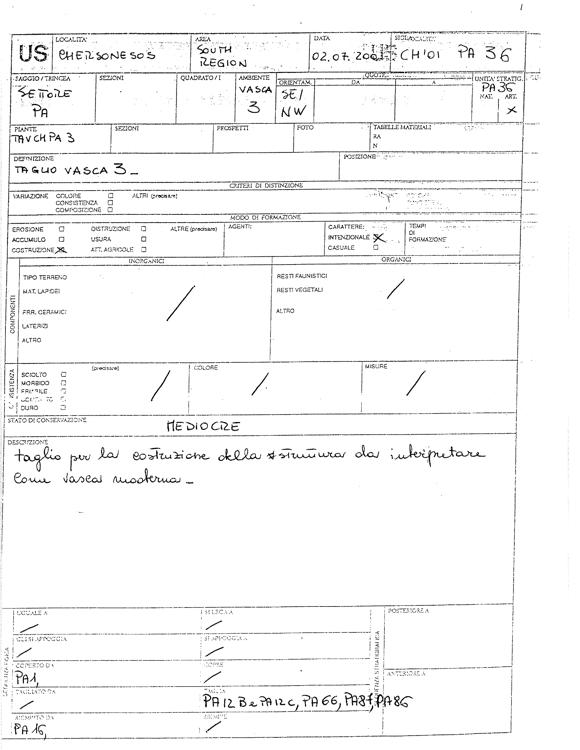 US
LOCALITA'
CHERSONESOS
AREA
SOUTH
REGION
DATA
02.07.2001
SIGLA
CH'01 PA 36
SAGGIO / TRINCEA
SETTORE
PA
SEZIONI
QUADRATO / I
AMBIENTE
VASCA
3
ORIENTAM.
SE/
NW
QUOTE
DA
A
UNITA' STRATIG.
PA36
NAT. ART.
X
PIANTE
TAVCHPA 3
SEZIONI
PROSPETTI
FOTO
TABELLE MATERIALI
RA
N
DEFINIZIONE
TAGLIO VASCA 3_
POSIZIONE
CRITERI DI DISTINZIONE
VARIAZIONE COLORE ☐ ALTRI (precisare)
CONSISTENZA ☐
COMPOSIZIONE ☐
MODO DI FORMAZIONE
EROSIONE ☐ DISTRUZIONE ☐ ALTRE (precisare)
ACCUMULO ☐ USURA ☐
COSTRUZIONE X ATT. AGRICOLE ☐
AGENTE:
CARATTERE:
INTENZIONALE X
CASUALE ☐
TEMPI
DI
FORMAZIONE
INORGANICI
ORGANICI
COMPONENTI
TIPO TERRENO
MAT. LAPIDEI
FRR. CERAMICI
LATERIZI
ALTRO
/
RESTI FAUNISTICI
RESTI VEGETALI
ALTRO
/
SCIOLTO ☐ (precisare)
MORBIDO ☐
FRIABILE ☐
DURO ☐
/
COLORE
/
MISURE
/
STATO DI CONSERVAZIONE
MEDIOCRE
DESCRIZIONE
taglio per la costruzione della struttura da interpretare
come vasca moderna_
UGUALE A
/
SI LEGA A
/
POSTERIORE A
GLI SI APPOGGIA
/
SI APPOGGIA
/
COPERTO DA
PA1,
COPRE
/
ANTERIORE A
TAGLIATO DA
/
TAGLIA
PA12B e PA12C, PA66, PA87, PA86
RIEMPITO DA
PA16,
RIEMPIE
/